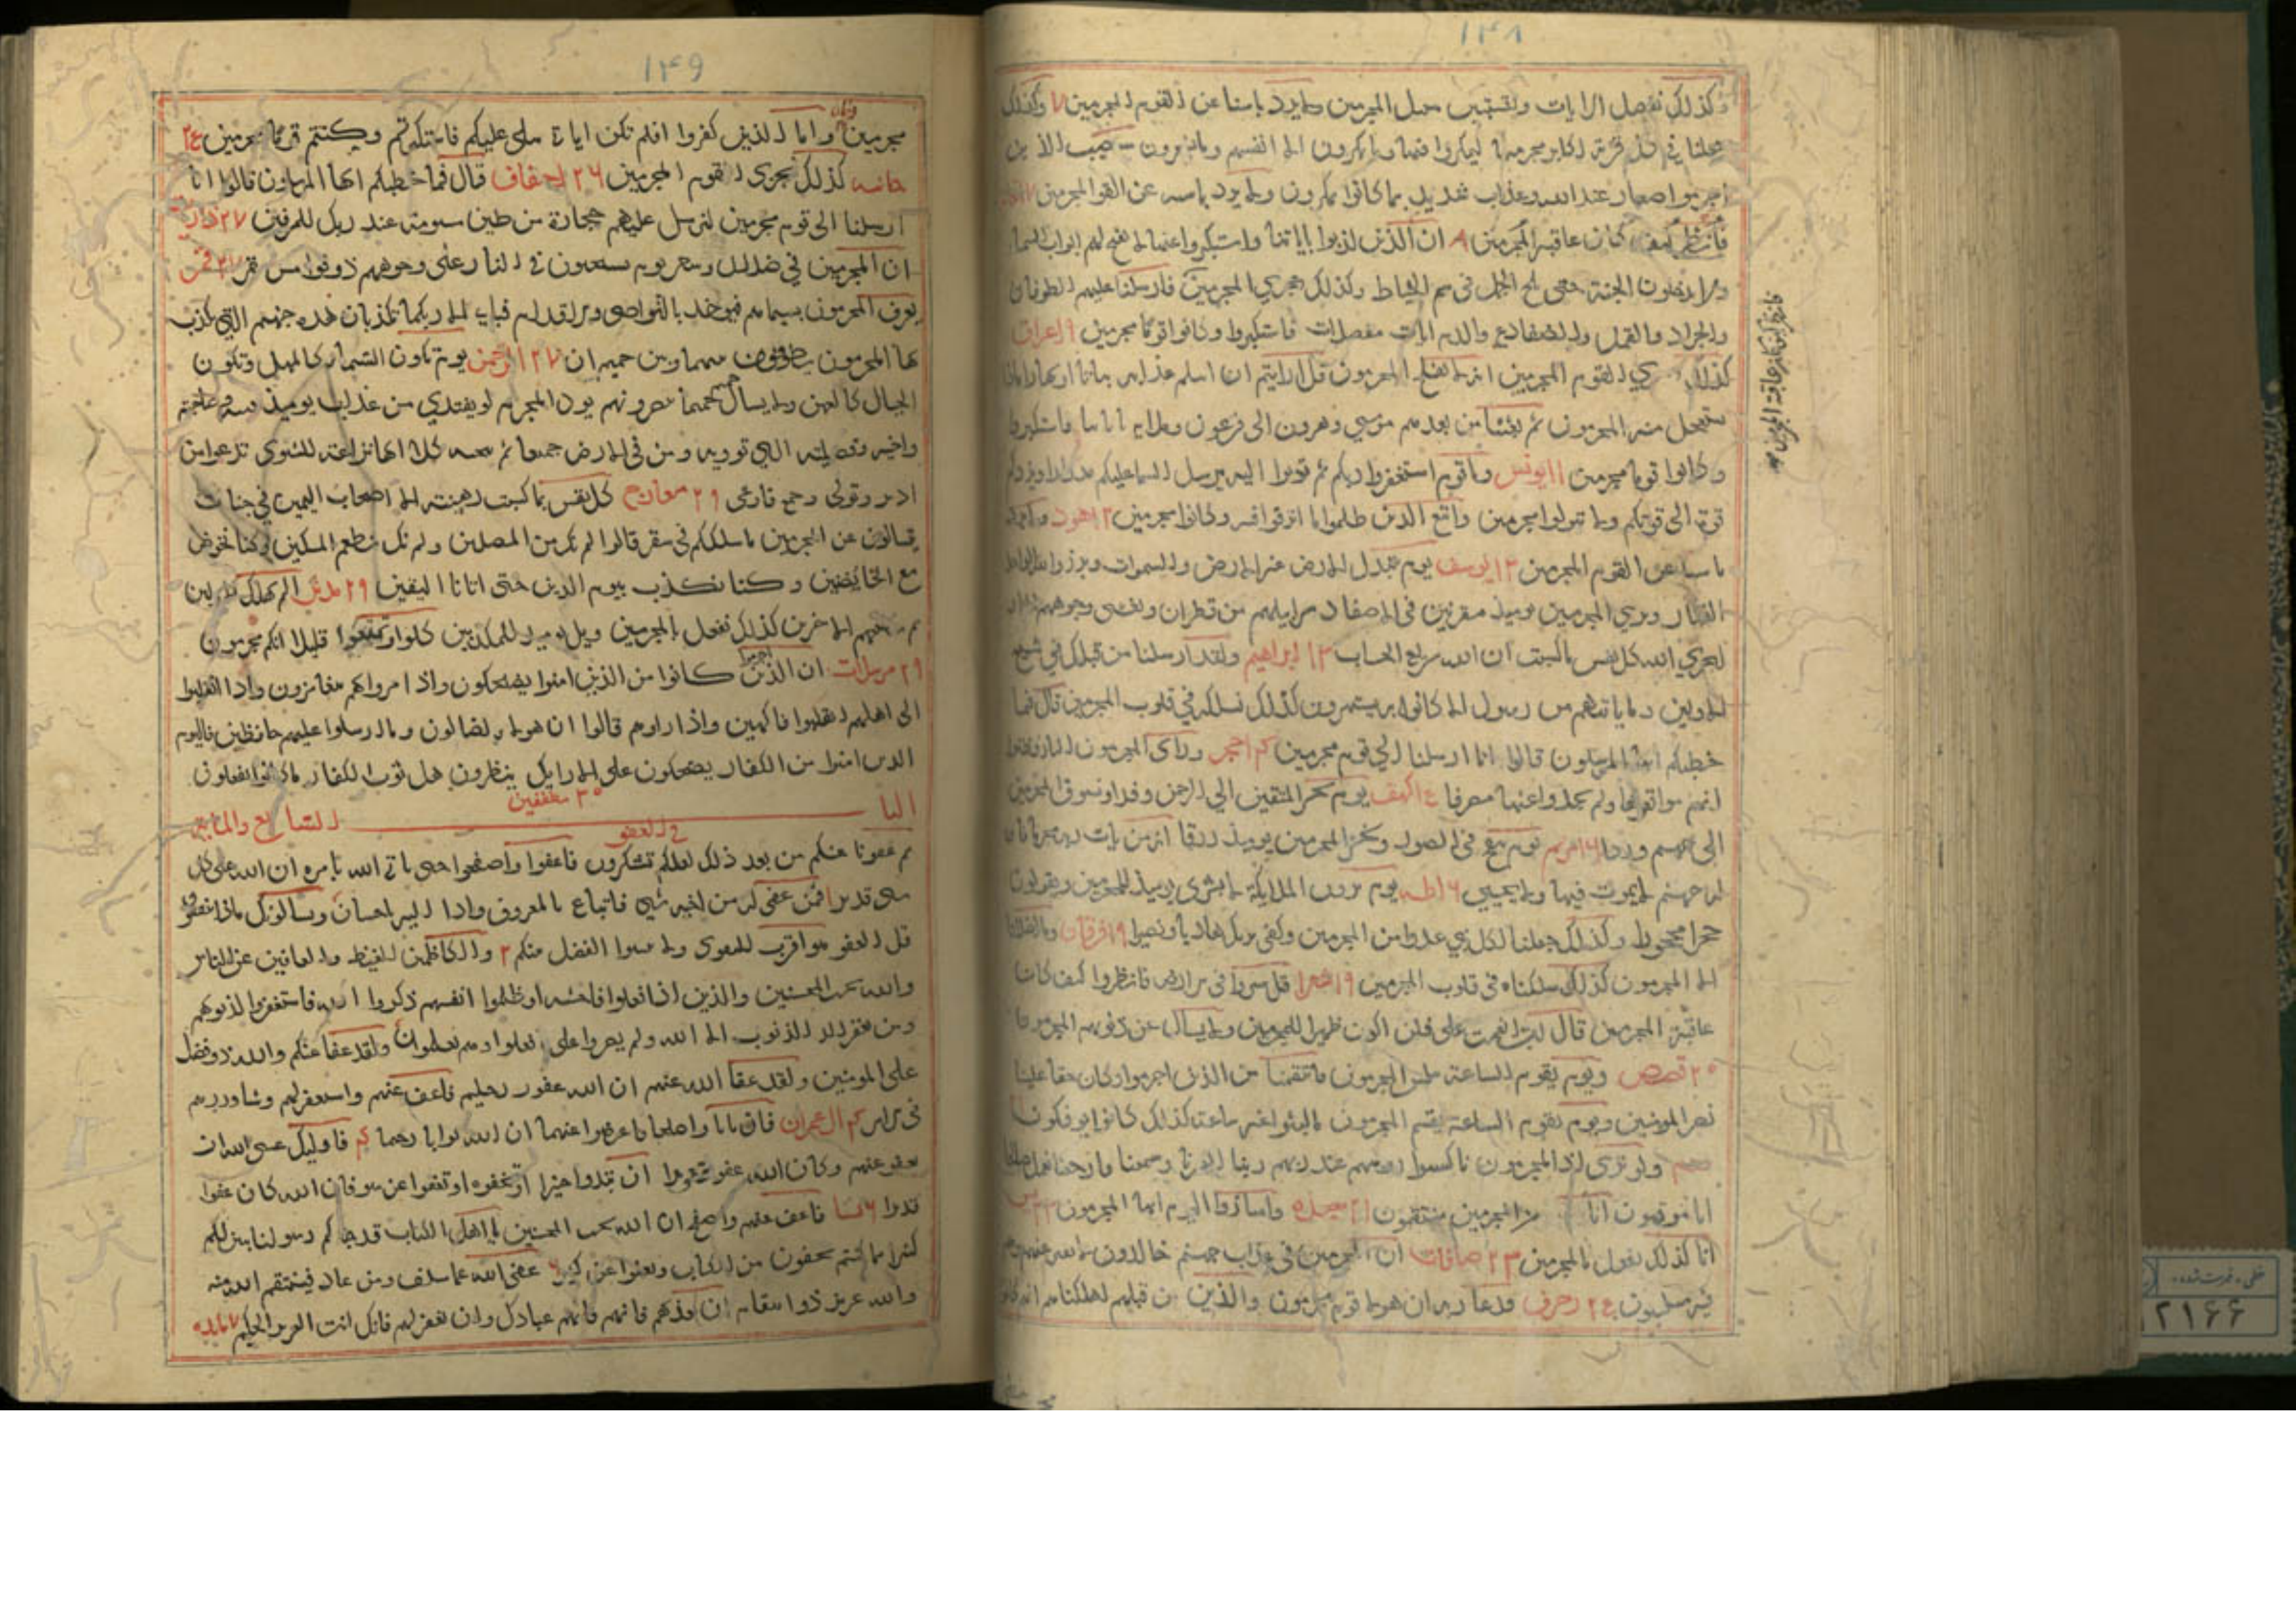 ۱۴۸
وكذلك نفصل الايات ولتستبين سبيل المجرمين ولا يرد باسنا عن القوم المجرمين ۷ وكذلك
جعلنا في كل قرية اكابر مجرميها ليمكروا فيها وما يمكرون الا بانفسهم وما يشعرون سيصيب الذين
اجرموا صغار عند الله وعذاب شديد بما كانوا يمكرون ولا يرد باسه عن القوم المجرمين
فانظر كيف كان عاقبة المجرمين ۸ ان الذين كذبوا باياتنا واستكبروا عنها لا تفتح لهم ابواب السما
ولا يدخلون الجنة حتى يلج الجمل في سم الخياط وكذلك نجزي المجرمين فارسلنا عليهم الطوفان
والجراد والقمل والضفادع والدم ايات مفصلات فاستكبروا وكانوا قوما مجرمين ۹ اعراف
كذلك نجزي القوم المجرمين انه لا يفلح المجرمون قل ارايتم ان اتيكم عذابه بياتا او نهارا ماذا
يستعجل منه المجرمون ثم بعثنا من بعدهم موسى وهرون الى فرعون وملايه باياتنا فاستكبروا
وكانوا قوما مجرمين ۱۱ يونس وياقوم استغفروا ربكم ثم توبوا اليه يرسل السما عليكم مدرارا ويزدكم
قوة الى قوتكم ولا تتولوا مجرمين واتبع الذين ظلموا ما اترفوا فيه وكانوا مجرمين ۱۲ هود ولا يرد
باسنا عن القوم المجرمين ۱۳ يوسف يوم تبدل الارض غير الارض والسموات وبرزوا لله الواحد
القهار وترى المجرمين يوميذ مقرنين في الاصفاد سرابيلهم من قطران وتغشى وجوههم النار
ليجزي الله كل نفس ما كسبت ان الله سريع الحساب ۱۳ ابراهيم ولقد ارسلنا من قبلك في شيع
الاولين وما ياتيهم من رسول الا كانوا به يستهزون كذلك نسلكه في قلوب المجرمين قال فما
خطبكم ايها المرسلون قالوا انا ارسلنا الى قوم مجرمين حجر وراى المجرمون النار فظنوا
انهم مواقعوها ولم يجدوا عنها مصرفا كهف يوم نحشر المتقين الى الرحمن وفدا ونسوق المجرمين
الى جهنم وردا ۱۶ مريم يوم ينفخ في الصور ونحشر المجرمين يوميذ زرقا انه من يات ربه مجرما فان
له جهنم لا يموت فيها ولا يحيى ۱۶ طه يوم يرون الملايكة لا بشرى يوميذ للمجرمين ويقولون
حجرا محجورا وكذلك جعلنا لكل نبي عدوا من المجرمين وكفى بربك هاديا ونصيرا ۱۹ فرقان وما اضلنا
الا المجرمون كذلك سلكناه في قلوب المجرمين ۱۹ شعرا قل سيروا في الارض فانظروا كيف كان
عاقبة المجرمين قال رب بما انعمت علي فلن اكون ظهيرا للمجرمين ولا يسال عن ذنوبهم المجرمون
۲۰ قصص ويوم تقوم الساعة يبلس المجرمون فانتقمنا من الذين اجرموا وكان حقا علينا
نصر المومنين ويوم تقوم الساعة يقسم المجرمون ما لبثوا غير ساعة كذلك كانوا يوفكون
ولو ترى اذ المجرمون ناكسوا روسهم عند ربهم ربنا ابصرنا وسمعنا فارجعنا نعمل صالحا
انا موقنون انا من المجرمين منتقمون ۲۱ سجده وامتازوا اليوم ايها المجرمون
انا كذلك نفعل بالمجرمين ۲۳ صافات ان المجرمين في عذاب جهنم خالدون لا يفتر عنهم وهم
فيه مبلسون زخرف فدعا ربه ان هولا قوم مجرمون والذين من قبلهم اهلكناهم انهم كانوا
فانظر كيف كان عاقبة المجرمين
۱۴۹
مجرمين واما الذين كفروا افلم تكن اياتي تتلى عليكم فاستكبرتم وكنتم قوما مجرمين
جاثيه كذلك نجزي القوم المجرمين ۲۶ احقاف قال فما خطبكم ايها المرسلون قالوا انا
ارسلنا الى قوم مجرمين لنرسل عليهم حجارة من طين مسومة عند ربك للمسرفين ۲۷
ان المجرمين في ضلال وسعر يوم يسحبون في النار على وجوههم ذوقوا مس سقر ۲۷ قمر
يعرف المجرمون بسيماهم فيوخذ بالنواصي والاقدام فباي الا ربكما تكذبان هذه جهنم التي يكذب
بها المجرمون يطوفون بينها وبين حميم ان ۲۷ الرحمن يوم تكون السما كالمهل وتكون
الجبال كالعهن ولا يسال حميم حميما يبصرونهم يود المجرم لو يفتدي من عذاب يوميذ ببنيه وصاحبته
واخيه وفصيلته التي توويه ومن في الارض جميعا ثم ينجيه كلا انها لظى نزاعة للشوى تدعوا من
ادبر وتولى وجمع فاوعى ۲۹ معارج كل نفس بما كسبت رهينة الا اصحاب اليمين في جنات
يتسالون عن المجرمين ما سلككم في سقر قالوا لم نك من المصلين ولم نك نطعم المسكين وكنا نخوض
مع الخايضين وكنا نكذب بيوم الدين حتى اتانا اليقين ۲۹ مدثر الم نهلك الاولين
ثم نتبعهم الاخرين كذلك نفعل بالمجرمين ويل يوميذ للمكذبين كلوا وتمتعوا قليلا انكم مجرمون
۲۹ مرسلات ان الذين اجرموا كانوا من الذين امنوا يضحكون واذا مروا بهم يتغامزون واذا انقلبوا
الى اهلهم انقلبوا فاكهين واذا راوهم قالوا ان هولا لضالون وما ارسلوا عليهم حافظين فاليوم
الذين امنوا من الكفار يضحكون على الارايك ينظرون هل ثوب الكفار ما كانوا يفعلون
۳۰ مطففين
البا السابع والمايتين
في العفو
ثم عفونا عنكم من بعد ذلك لعلكم تشكرون فاعفوا واصفحوا حتى ياتي الله بامره ان الله على كل
شي قدير فمن عفي له من اخيه شي فاتباع بالمعروف وادا اليه باحسان ويسالونك ماذا ينفقون
قل العفو هو اقرب للتقوى ولا تنسوا الفضل بينكم ۲ والكاظمين الغيظ والعافين عن الناس
والله يحب المحسنين والذين اذا فعلوا فاحشة او ظلموا انفسهم ذكروا الله فاستغفروا لذنوبهم
ومن يغفر الذنوب الا الله ولم يصروا على ما فعلوا وهم يعلمون ولقد عفا عنكم والله ذو فضل
على المومنين ولقد عفا الله عنهم ان الله غفور حليم فاعف عنهم واستغفر لهم وشاورهم
في الامر ال عمران فان تابا واصلحا فاعرضوا عنهما ان الله كان توابا رحيما فاوليك عسى الله ان
يعفو عنهم وكان الله عفوا غفورا ان تبدوا خيرا او تخفوه او تعفوا عن سو فان الله كان عفوا
قديرا ۶ نسا فاعف عنهم واصفح ان الله يحب المحسنين يا اهل الكتاب قد جاكم رسولنا يبين لكم
كثيرا مما كنتم تخفون من الكتاب ويعفوا عن كثير ۶ عفى الله عما سلف ومن عاد فينتقم الله منه
والله عزيز ذو انتقام ان تعذبهم فانهم عبادك وان تغفر لهم فانك انت العزيز الحكيم ۷ مايده
خطی، فهرست شده
۱۲۱۶۶